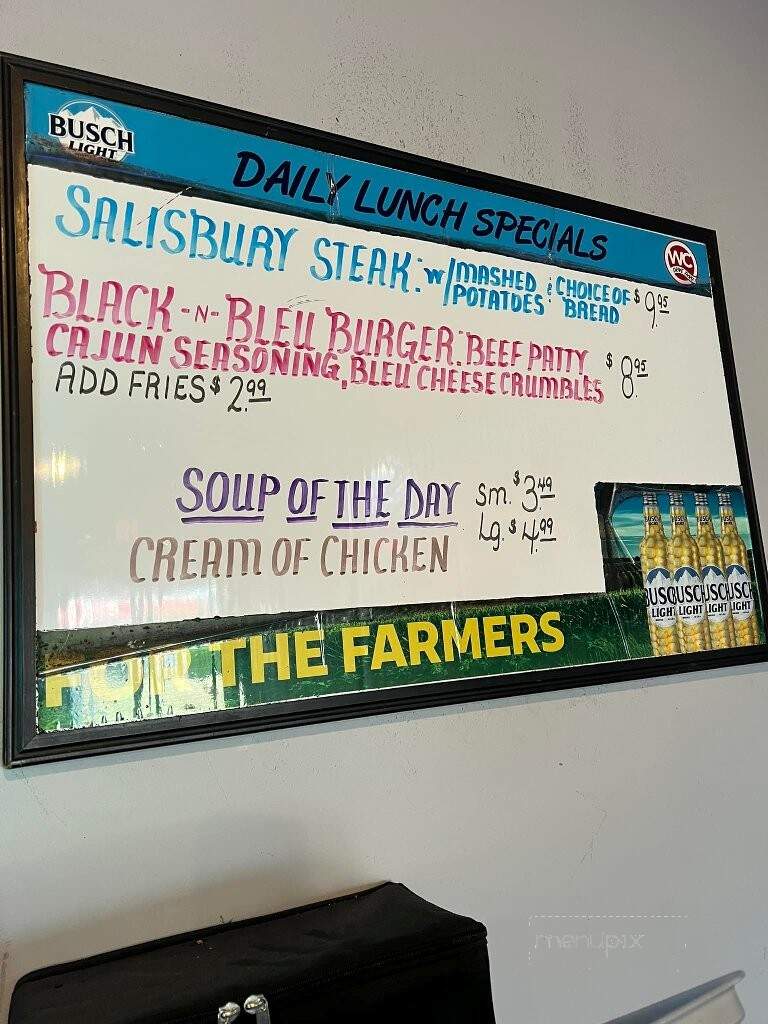 BUSCH
LIGHT
DAILY LUNCH SPECIALS
WC
SALISBURY STEAK: w/ MASHED POTATOES & CHOICE OF BREAD $9.95
BLACK -N- BLEU BURGER: BEEF PATTY
CAJUN SEASONING, BLEU CHEESE CRUMBLES $8.95
ADD FRIES $2.99
SOUP OF THE DAY sm. $3.49
CREAM OF CHICKEN Lg. $4.99
BUSCH BUSCH BUSCH BUSCH
LIGHT LIGHT LIGHT LIGHT
FOR THE FARMERS
menupix